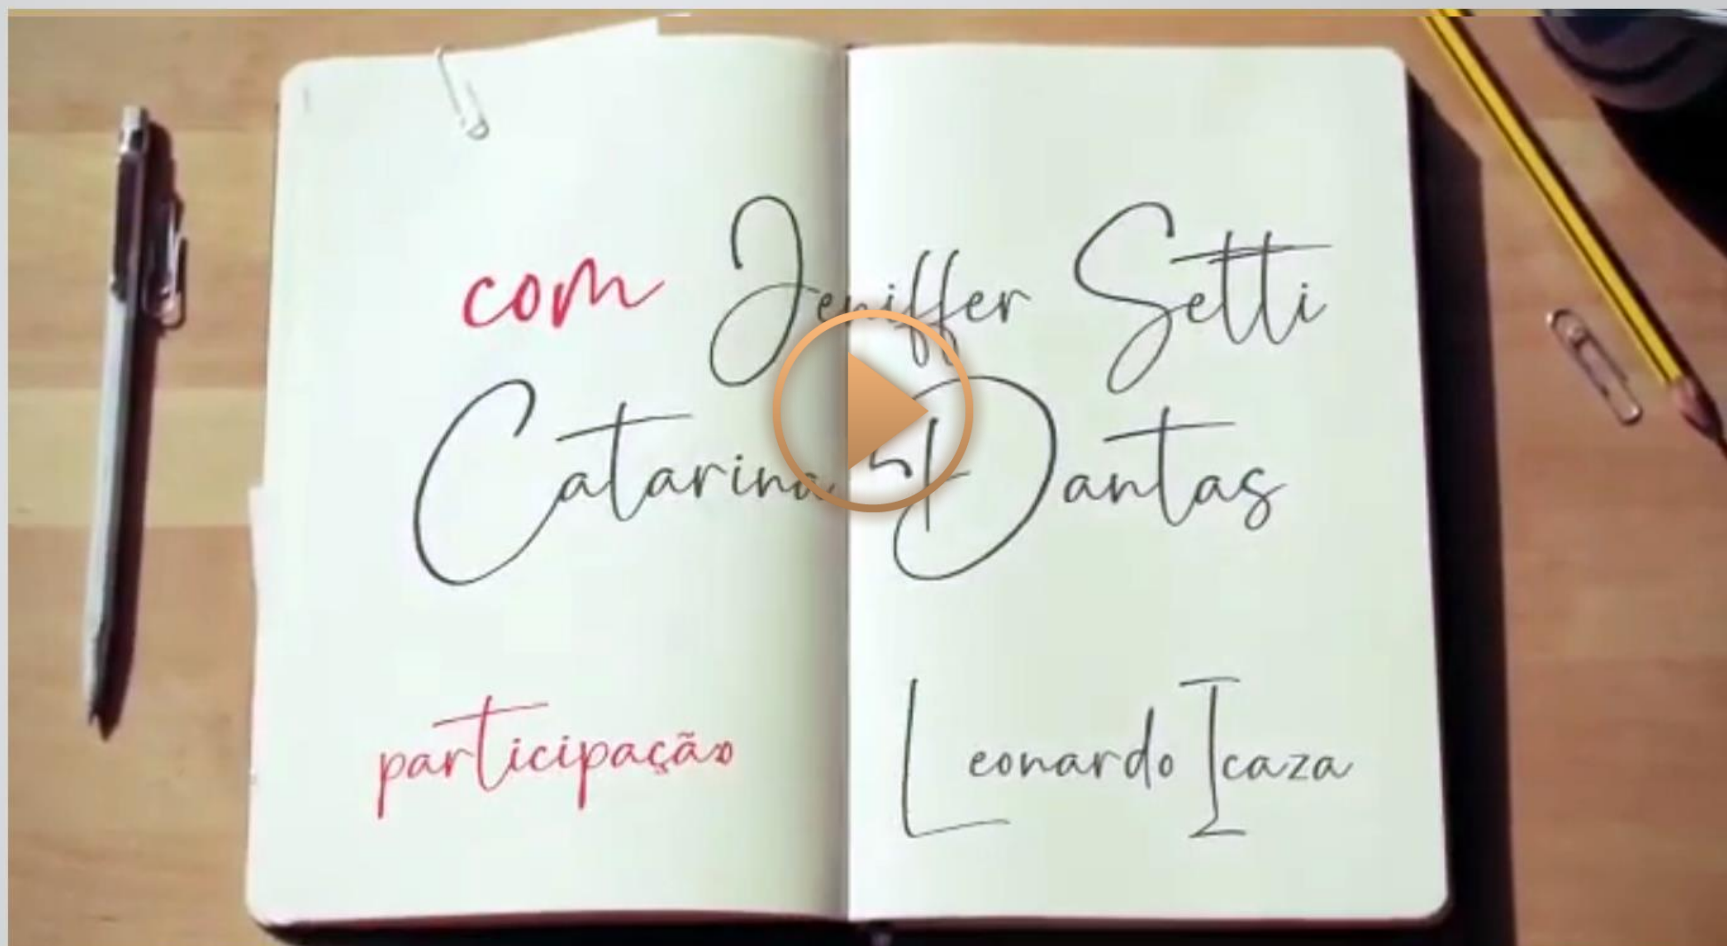 com Jeniffer Setti
Catarina Dantas
participação Leonardo Icaza